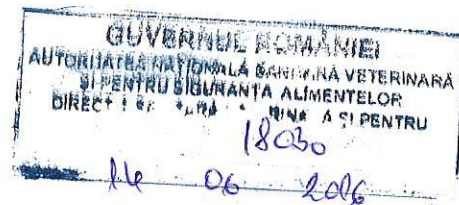 GUVERNUL ROMÂNIEI
AUTORITATEA NAȚIONALĂ SANITARĂ VETERINARĂ
ȘI PENTRU SIGURANȚA ALIMENTELOR
ȘI PENTRU
18030
14 06 2016